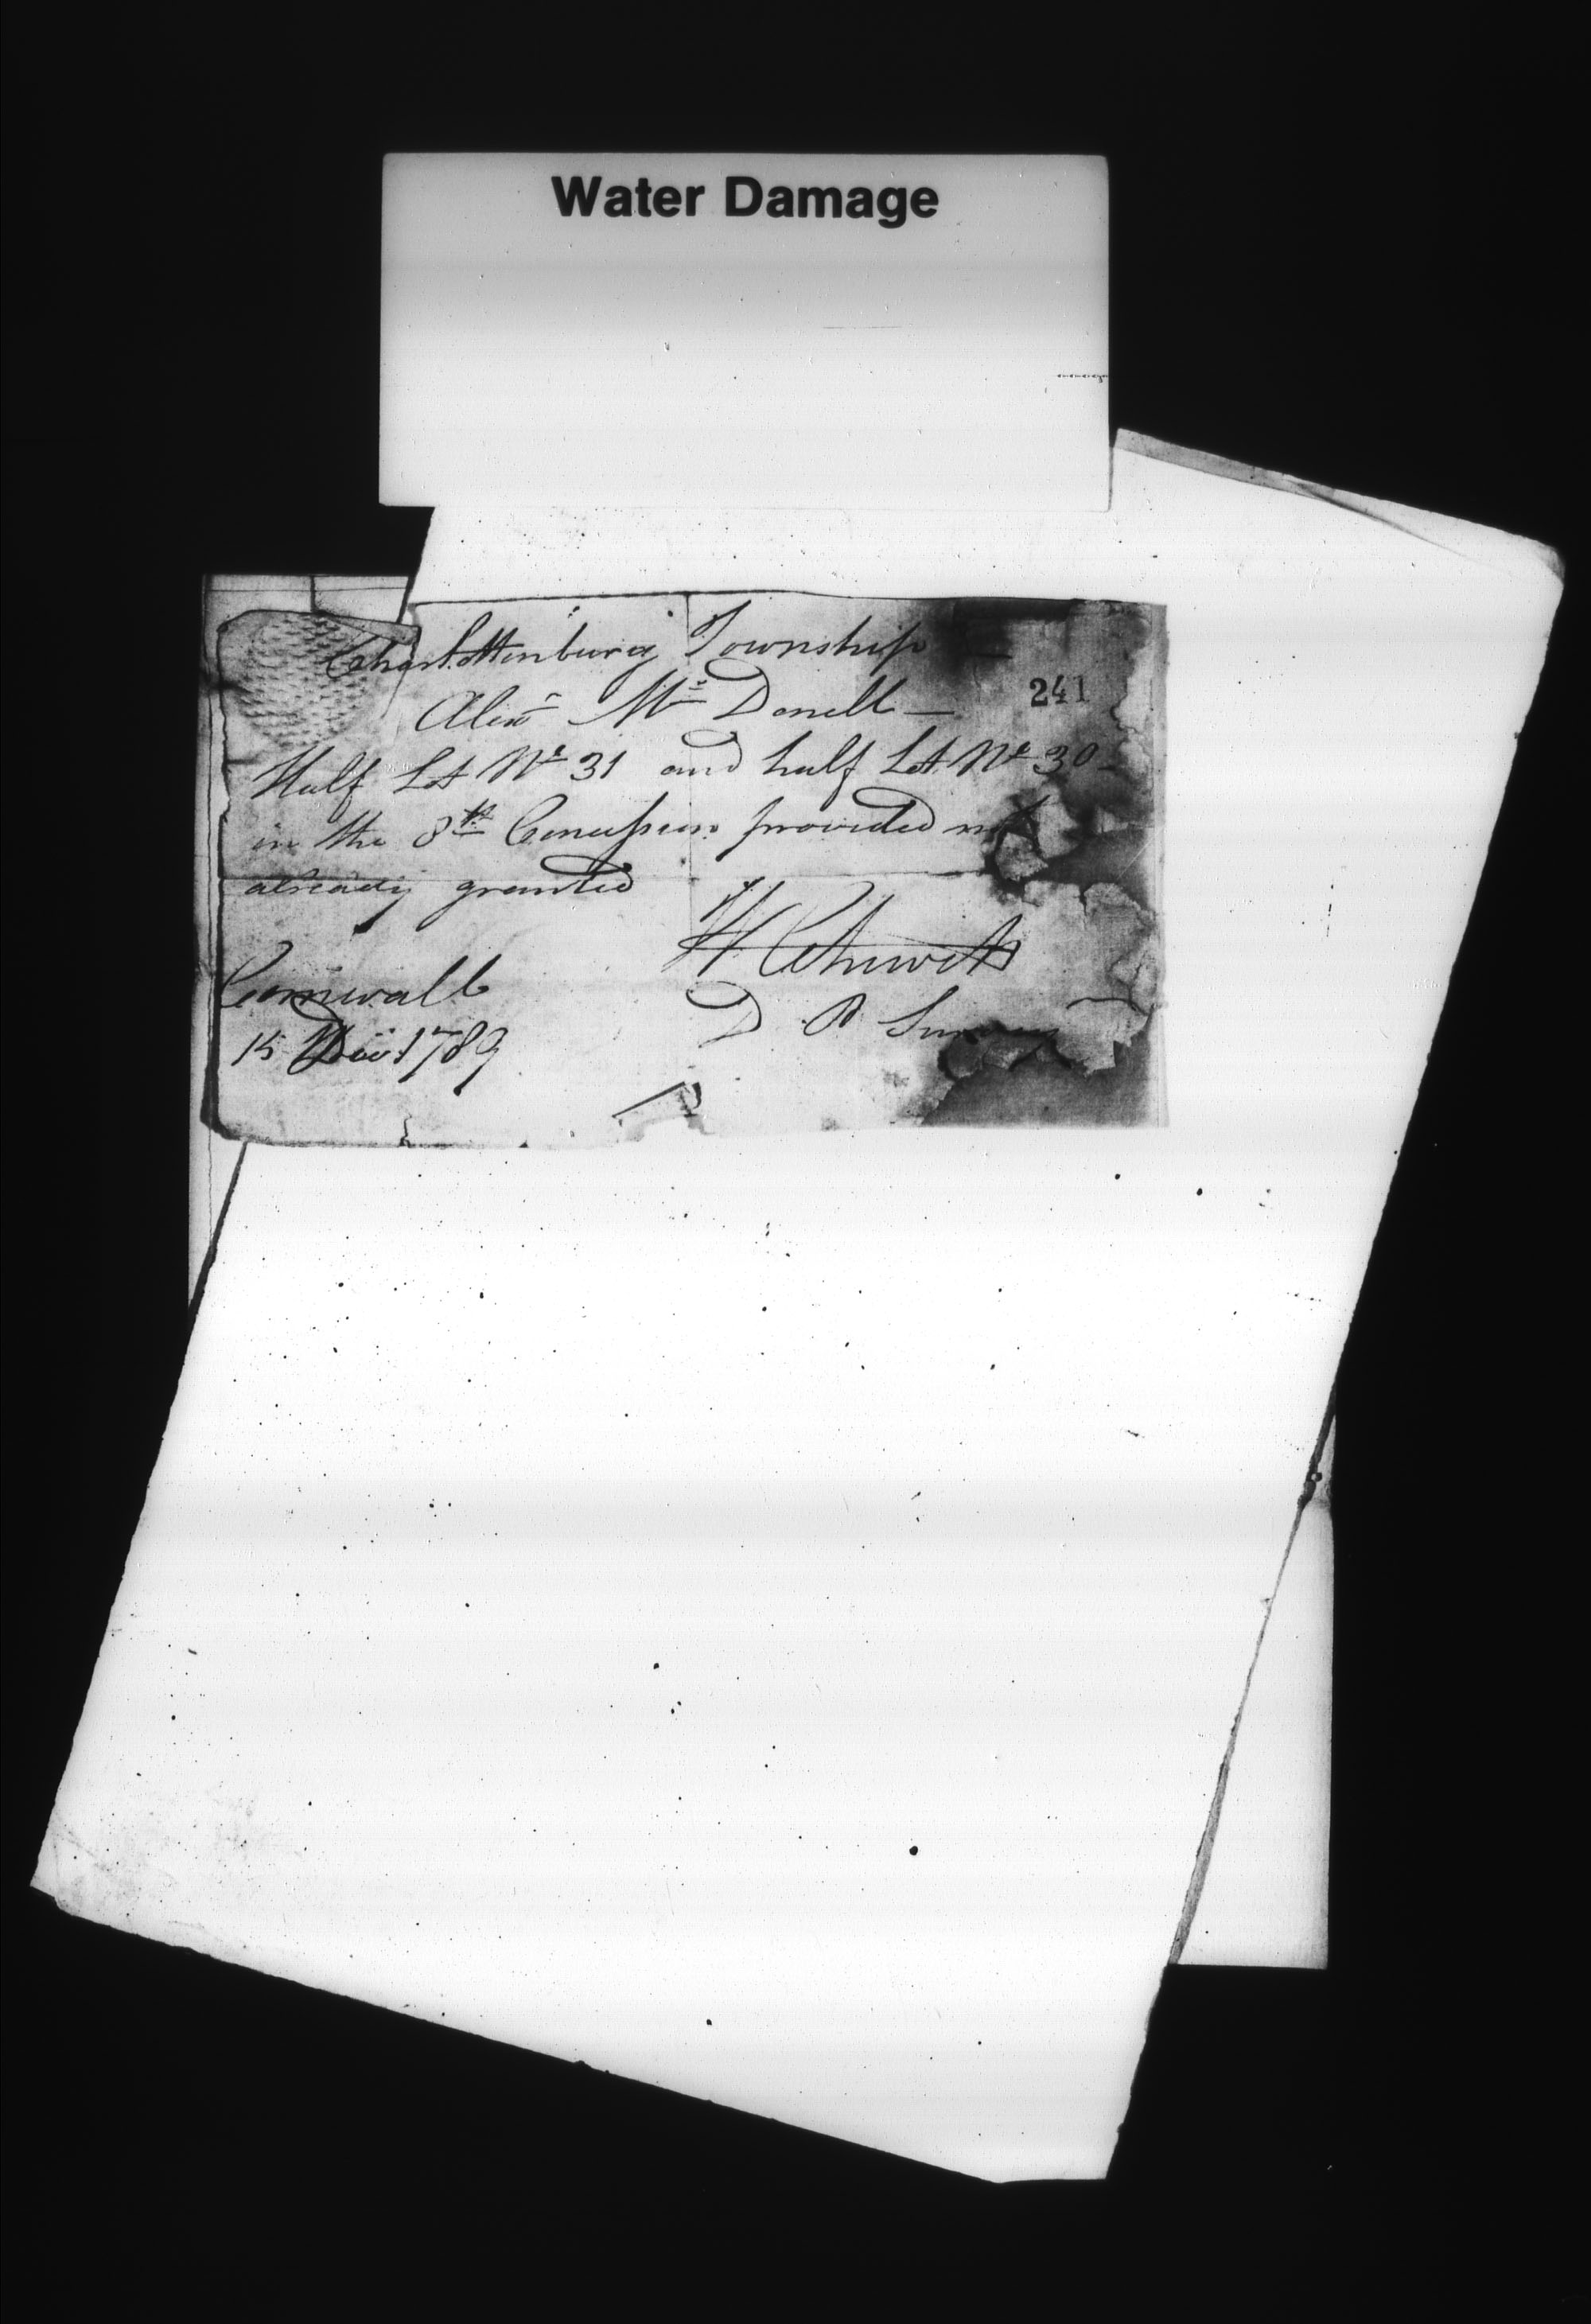 Water Damage
Charlottenburg Township —
241
Alexr Mc Donell —
Half Lot No 31 and half Lot No 30 -
in the 8th Concession provided not
already granted
W Chewett
D. P. Survey
Cornwall
15 Decr 1789